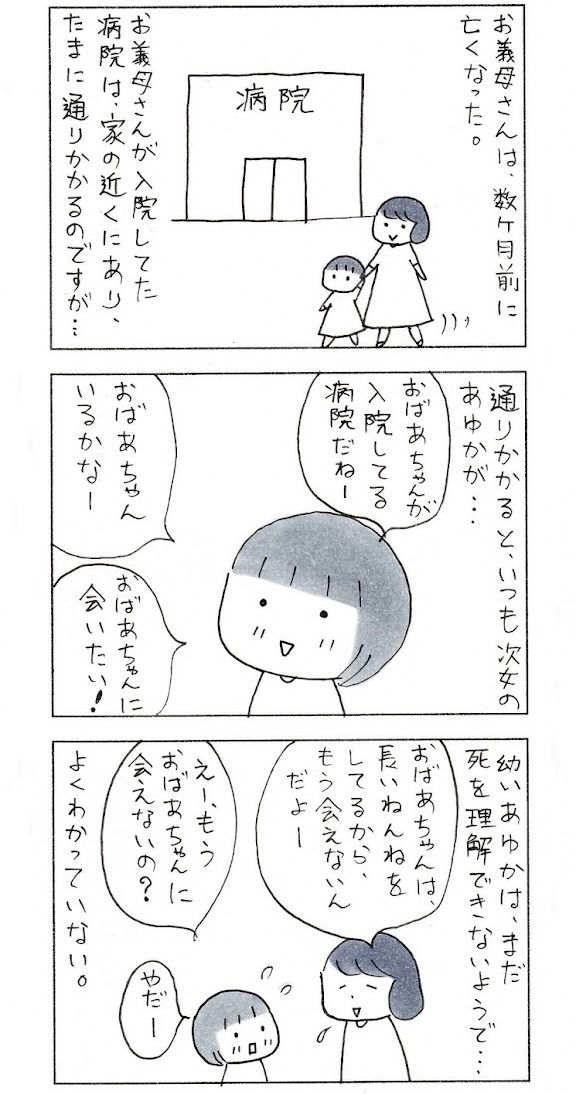 お義母さんは、数ケ月前に
亡くなった。
病院
お義母さんが入院してた
病院は、家の近くにあり、
たまに通りかかるのですが…
通りかかると、いつも次女の
あゆかが…
おばあちゃんが
入院してる
病院だねー
おばあちゃん
いるかなー
おばあちゃんに
会いたい!
幼いあゆかは、まだ
死を理解できないようで…
おばあちゃんは、
長いねんねを
してるから、
もう会えないん
だよー
えー、もう
おばあちゃんに
会えないの?
やだー
よくわかっていない。